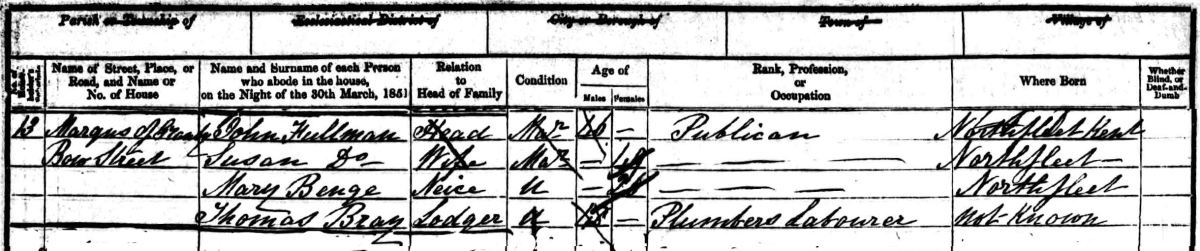 Parish or Township of Ecclesiastical District of City or Borough of Town of Village of
Name of Street, Place, or Road, and Name or No. of House
Name and Surname of each Person who abode in the house, on the Night of the 30th March, 1851
Relation to Head of Family
Condition
Age of
Males Females
Rank, Profession, or Occupation
Where Born
Whether Blind, or Deaf-and-Dumb
13 Marqus of John Fullman Head Mar Publican Northfleet Kent
Bow Street Susan Do Wife Mar Northfleet
Mary Benge Neice U Northfleet
Thomas Bray Lodger U Plumbers Labourer Not Known